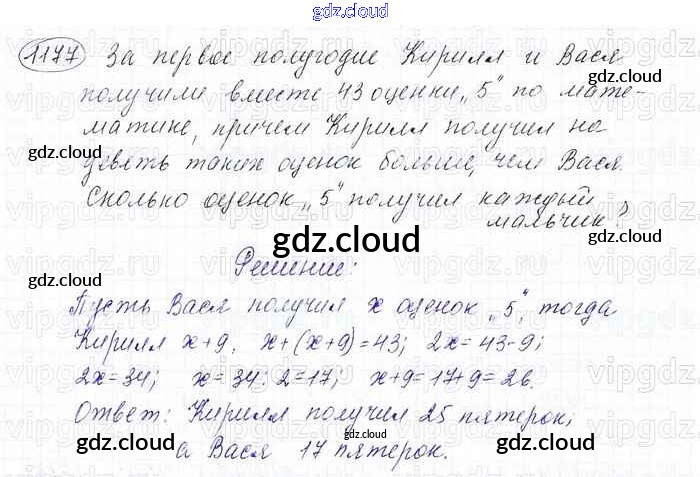 gdz.cloud
1177 За первое полугодие Кирилл и Вася
получили вместе 43 оценки „5“ по мате-
матике, причем Кирилл получил на
девять таких оценок больше, чем Вася.
Сколько оценок „5“ получил каждый
мальчик?
Решение:
Пусть Вася получил x оценок „5“, тогда
Кирилл x+9. x+(x+9)=43; 2x=43-9;
2x=34; x=34:2=17; x+9=17+9=26.
Ответ: Кирилл получил 25 пятерок,
а Вася 17 пятерок.
gdz.cloud
gdz.cloud
gdz.cloud
gdz.cloud
gdz.cloud
gdz.cloud
gdz.cloud
gdz.cloud
gdz.cloud